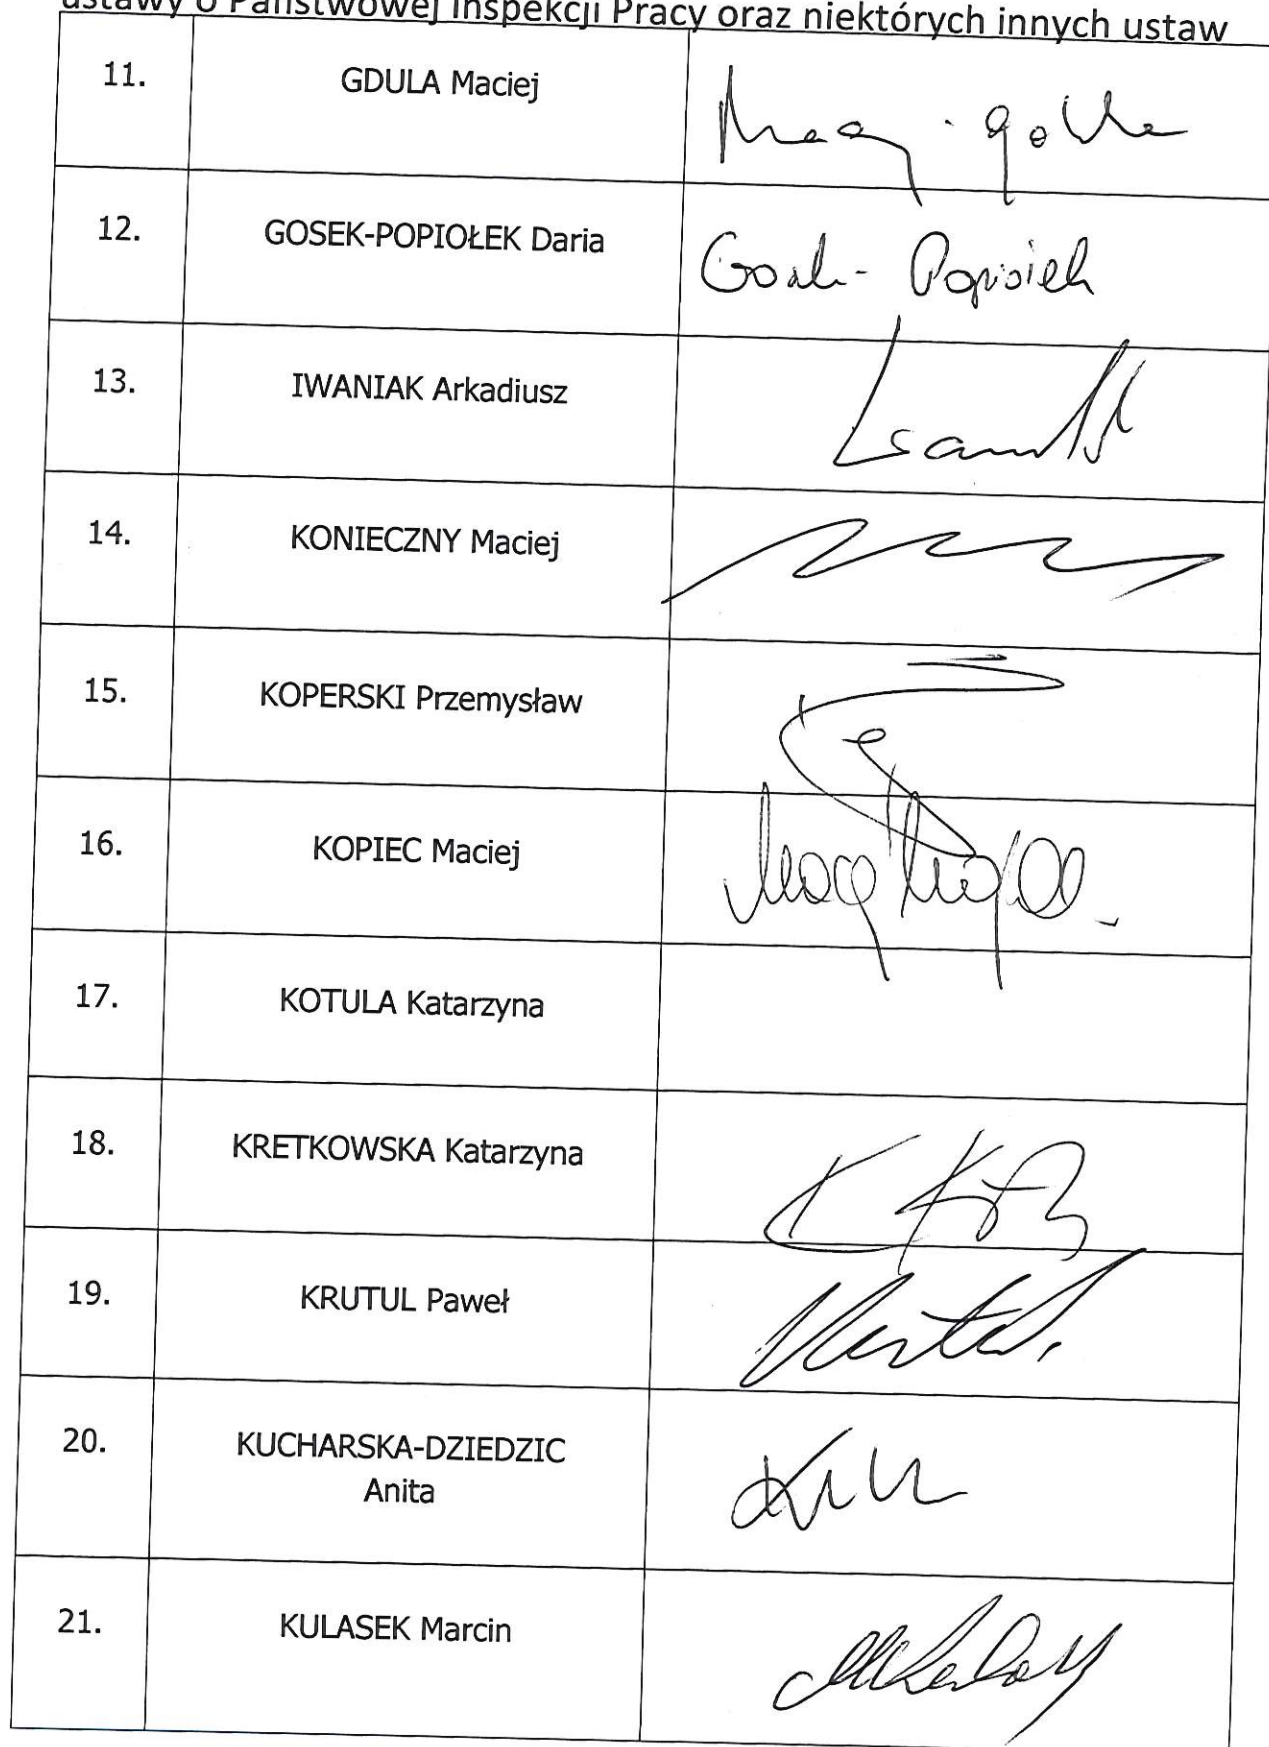 ustawy o Państwowej Inspekcji Pracy oraz niektórych innych ustaw
11. GDULA Maciej
12. GOSEK-POPIOŁEK Daria Gosek-Popiołek
13. IWANIAK Arkadiusz
14. KONIECZNY Maciej
15. KOPERSKI Przemysław
16. KOPIEC Maciej
17. KOTULA Katarzyna
18. KRETKOWSKA Katarzyna
19. KRUTUL Paweł
20. KUCHARSKA-DZIEDZIC
Anita
21. KULASEK Marcin